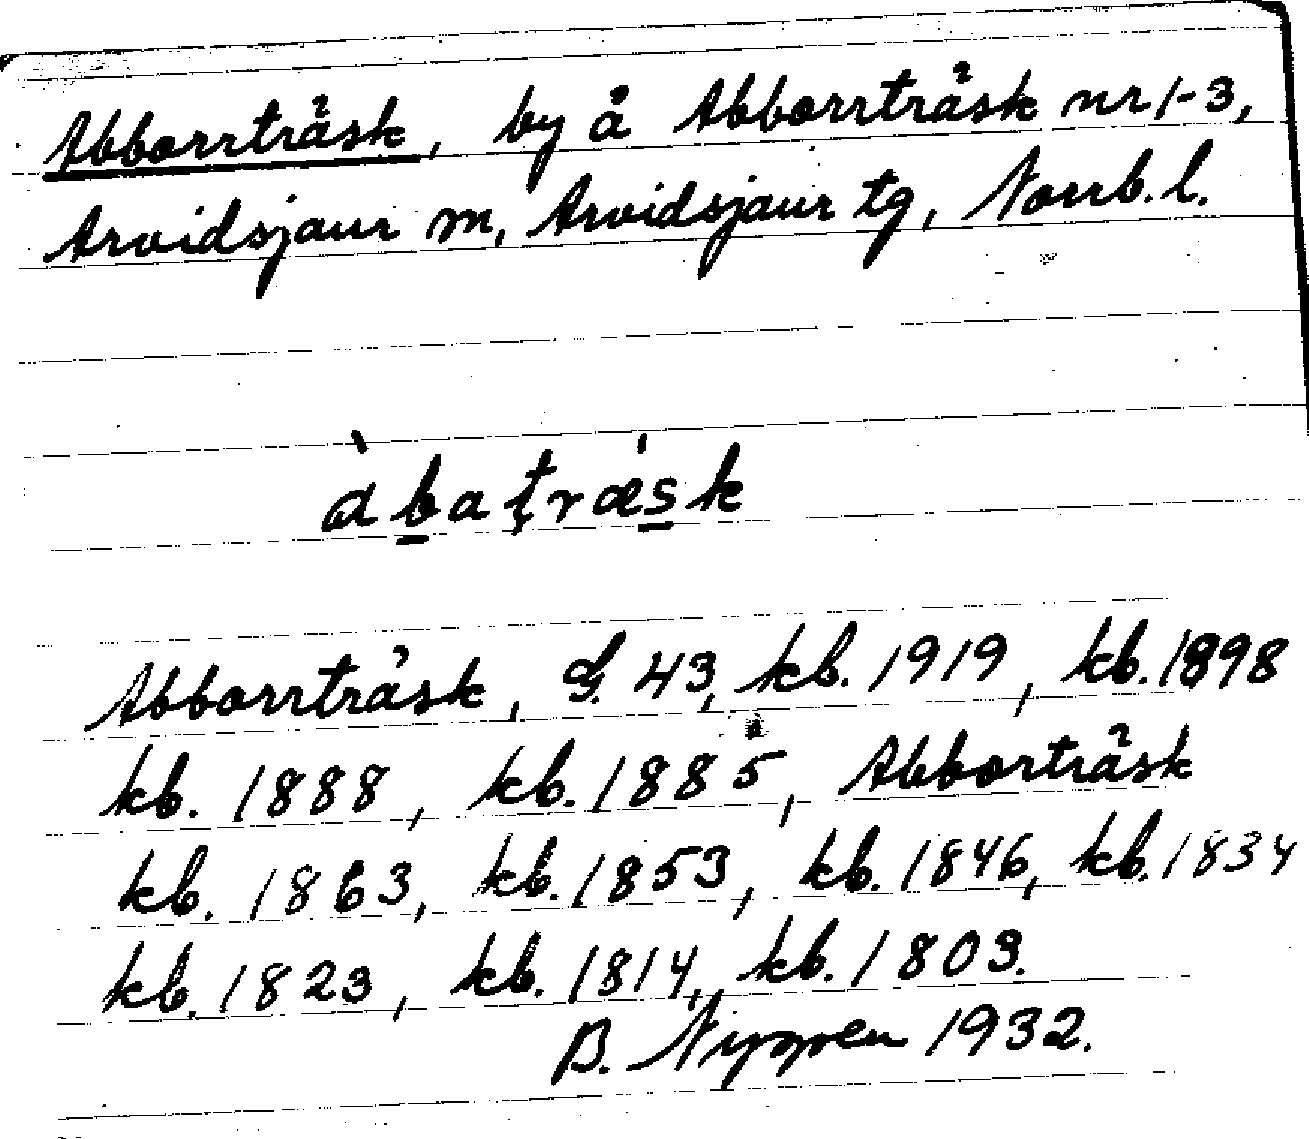 Abborrträsk, by å Abborrträsk nr 1-3,
Arvidsjaur sn, Arvidsjaur tg, Norrb. l.
àbatræ´sk
Abborrträsk, G. 43, kb. 1919, kb. 1898
kb. 1888, kb. 1885, Abborträsk
kb. 1863, kb. 1853, kb. 1846, kb. 1834
kb. 1823, kb. 1814, kb. 1803.
B. Nygren 1932.